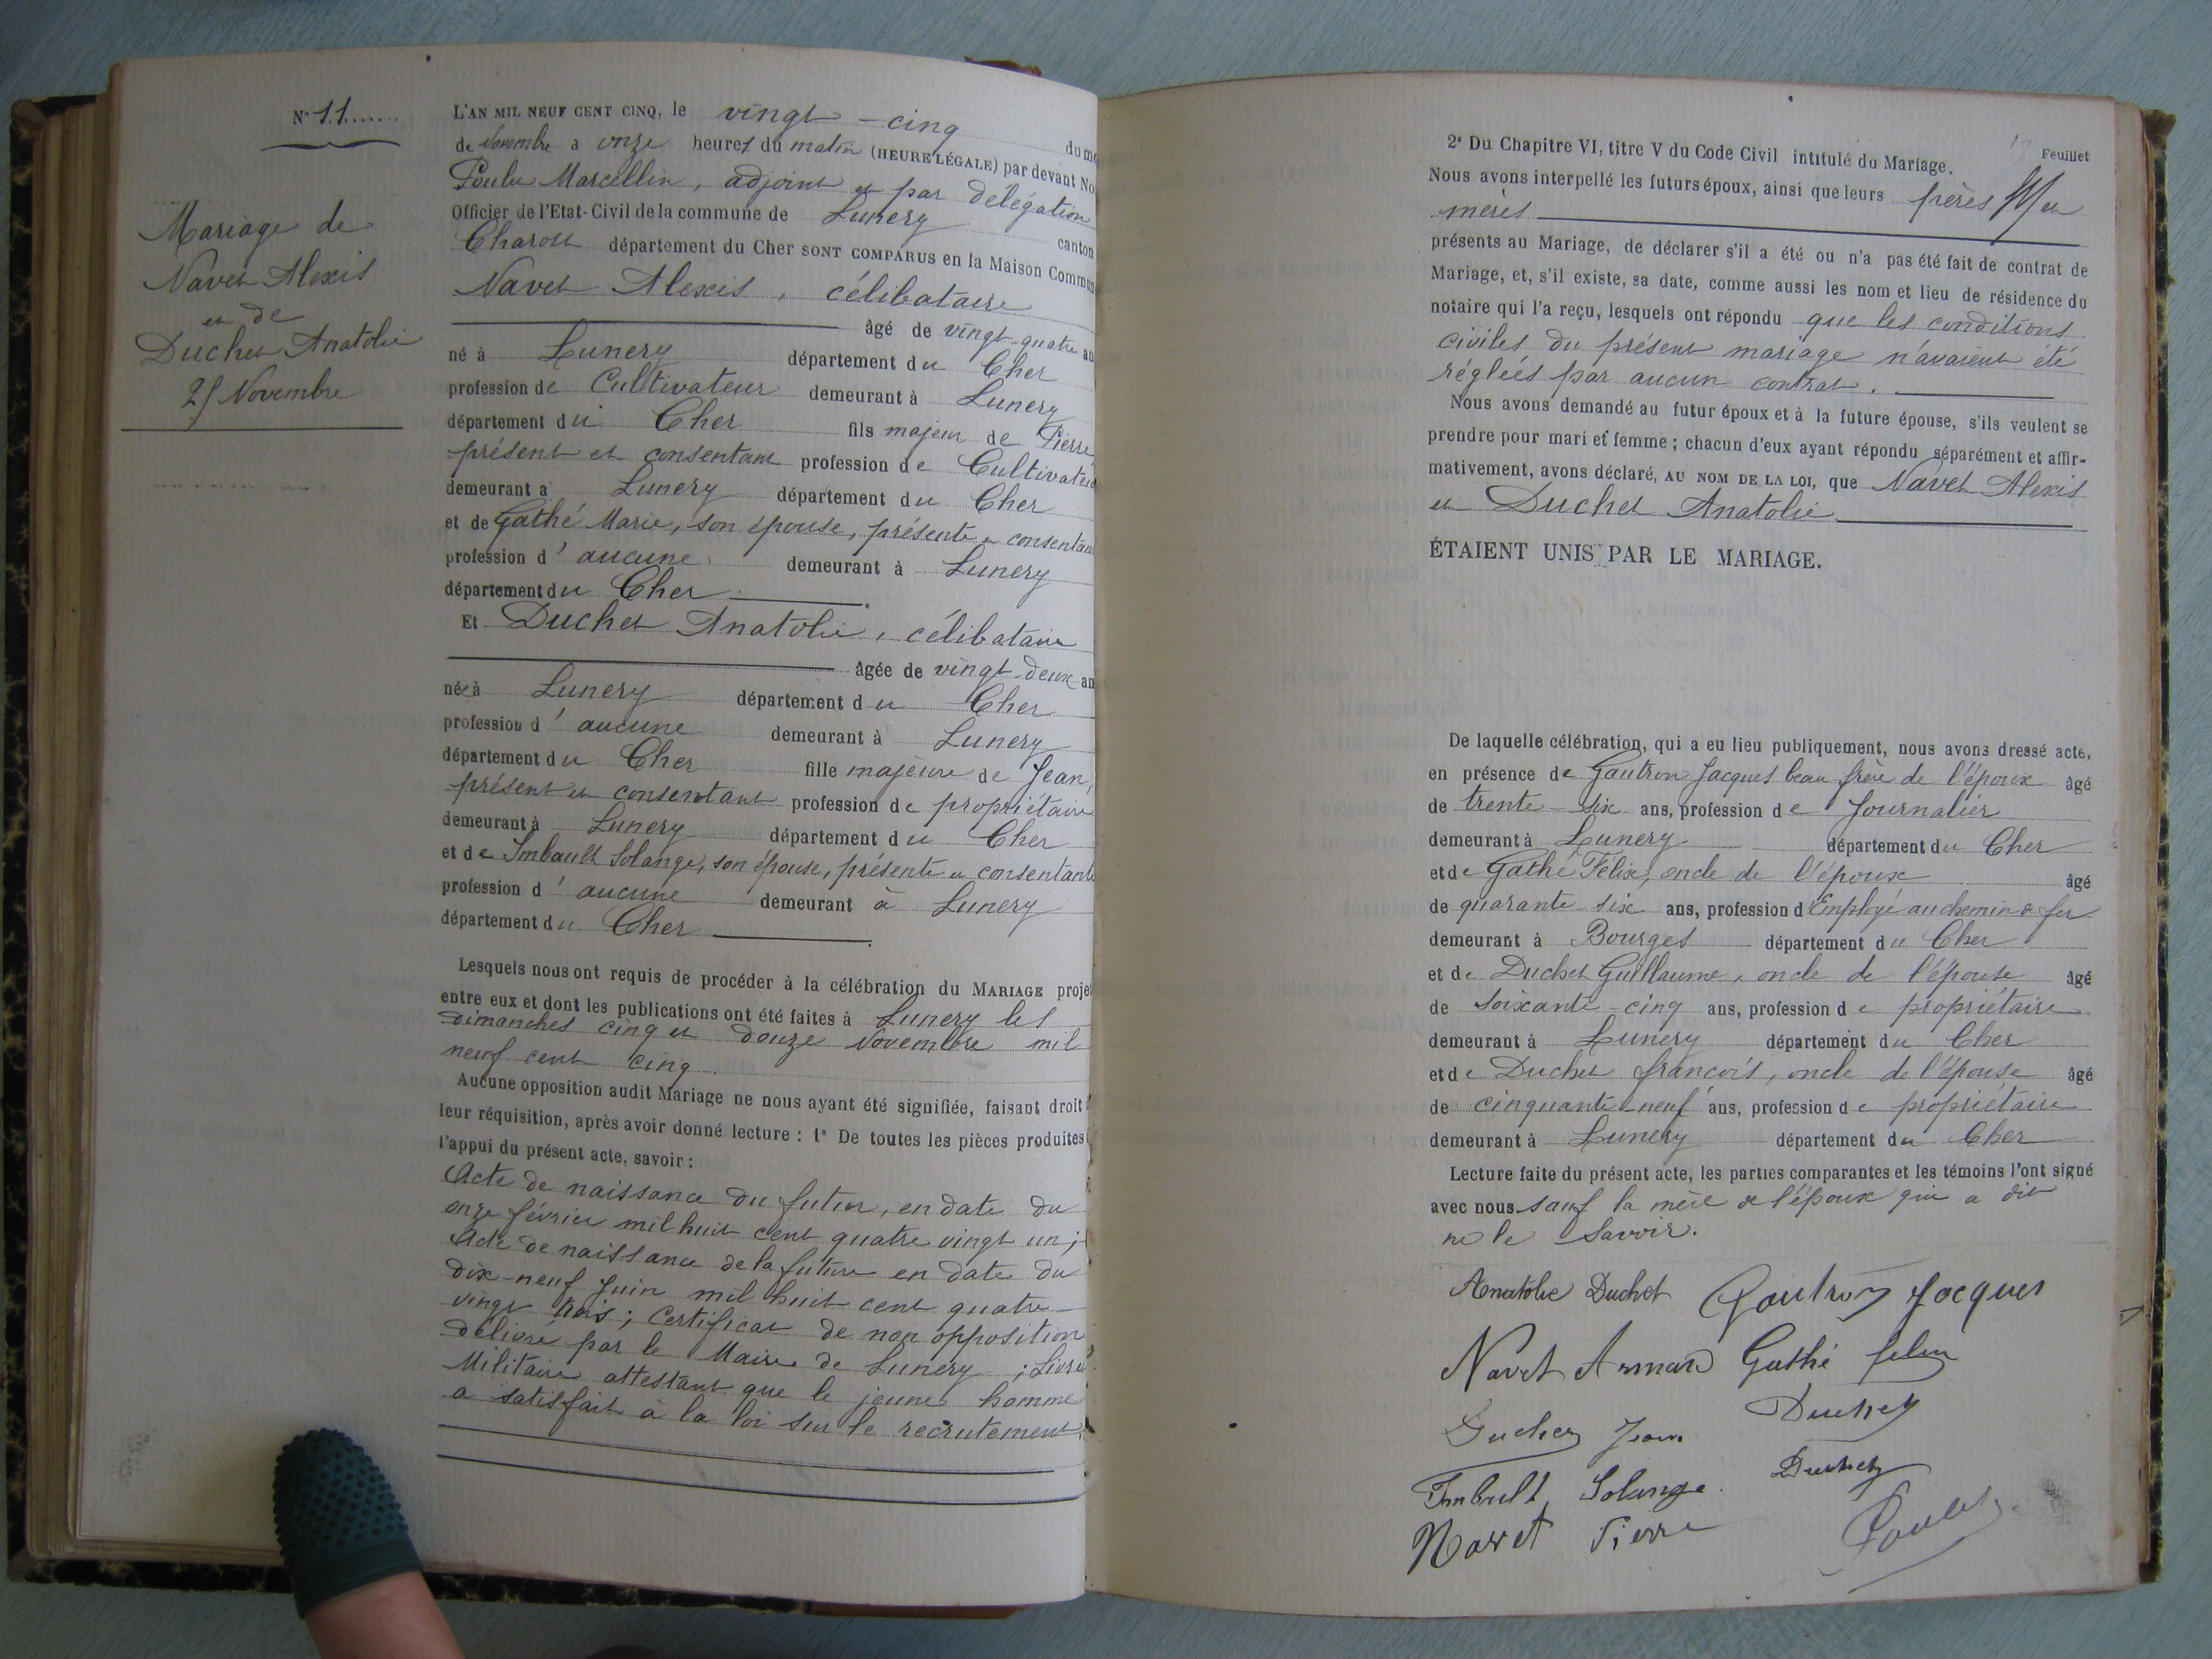 N° 11
Mariage de
Navet Alexis
et de
Duchet Anatolie
25 Novembre
L'AN MIL NEUF CENT CINQ, le vingt-cinq du mo
de Novembre à onze heures du matin (HEURE LÉGALE) par devant No
Marcellin, adjoint et par délégation
Officier de l'Etat-Civil de la commune de Lunery canton
Charost département du Cher SONT COMPARUS en la Maison Commun
Navet Alexis, célibataire
âgé de vingt-quatre an
né à Lunery département du Cher
profession de Cultivateur demeurant à Lunery
département du Cher fils majeur de Pierre,
présent et consentant profession de Cultivateu
demeurant à Lunery département du Cher
et de Gathé Marie, son épouse, présente et consentan
profession d'aucune demeurant à Lunery
département du Cher.
Et Duchet Anatolie, célibataire
âgée de vingt-deux an
née à Lunery département du Cher
profession d'aucune demeurant à Lunery
département du Cher fille majeure de Jean,
présent et consentant profession de propriétaire
demeurant à Lunery département du Cher
et de Imbault Solange, son épouse, présente et consentante
profession d'aucune demeurant à Lunery
département du Cher.
Lesquels nous ont requis de procéder à la célébration du MARIAGE proje
entre eux et dont les publications ont été faites à Lunery les
dimanches cinq et douze Novembre mil
neuf cent cinq.
Aucune opposition audit Mariage ne nous ayant été signifiée, faisant droit
leur réquisition, après avoir donné lecture : 1° De toutes les pièces produites
l'appui du présent acte, savoir :
Acte de naissance du futur, en date du
onze février mil huit cent quatre vingt un ;
Acte de naissance de la future en date du
dix-neuf Juin mil huit cent quatre-
vingt trois ; Certificat de non opposition
délivré par le Maire de Lunery ; Livret
Militaire attestant que le jeune homme
a satisfait à la loi sur le recrutement.
2° Du Chapitre VI, titre V du Code Civil intitulé du Mariage. Feuillet
Nous avons interpellé les futurs époux, ainsi que leurs pères et
mères
présents au Mariage, de déclarer s'il a été ou n'a pas été fait de contrat de
Mariage, et, s'il existe, sa date, comme aussi les nom et lieu de résidence du
notaire qui l'a reçu, lesquels ont répondu que les conditions
civiles du présent mariage n'avaient été
réglées par aucun contrat.
Nous avons demandé au futur époux et à la future épouse, s'ils veulent se
prendre pour mari et femme ; chacun d'eux ayant répondu séparément et affir-
mativement, avons déclaré, AU NOM DE LA LOI, que Navet Alexis
et Duchet Anatolie
ÉTAIENT UNIS PAR LE MARIAGE.
De laquelle célébration, qui a eu lieu publiquement, nous avons dressé acte,
en présence de Gautron Jacques beau frère de l'époux âgé
de trente-six ans, profession de Journalier
demeurant à Lunery département du Cher
et de Gathé Félix, oncle de l'époux âgé
de quarante six ans, profession d'Employé au chemin de fer
demeurant à Bourges département du Cher
et de Duchet Guillaume, oncle de l'épouse âgé
de soixante-cinq ans, profession de propriétaire
demeurant à Lunery département du Cher
et de Duchet françois, oncle de l'épouse âgé
de cinquante-neuf ans, profession de propriétaire
demeurant à Lunery département du Cher
Lecture faite du présent acte, les parties comparantes et les témoins l'ont signé
avec nous sauf la mère de l'époux qui a dit
ne le savoir.
Anatolie Duchet Gautron Jacques
Navet Gathé felix
Duchet Jean Duchet
Imbault Solange Duchet
Navet Pierre